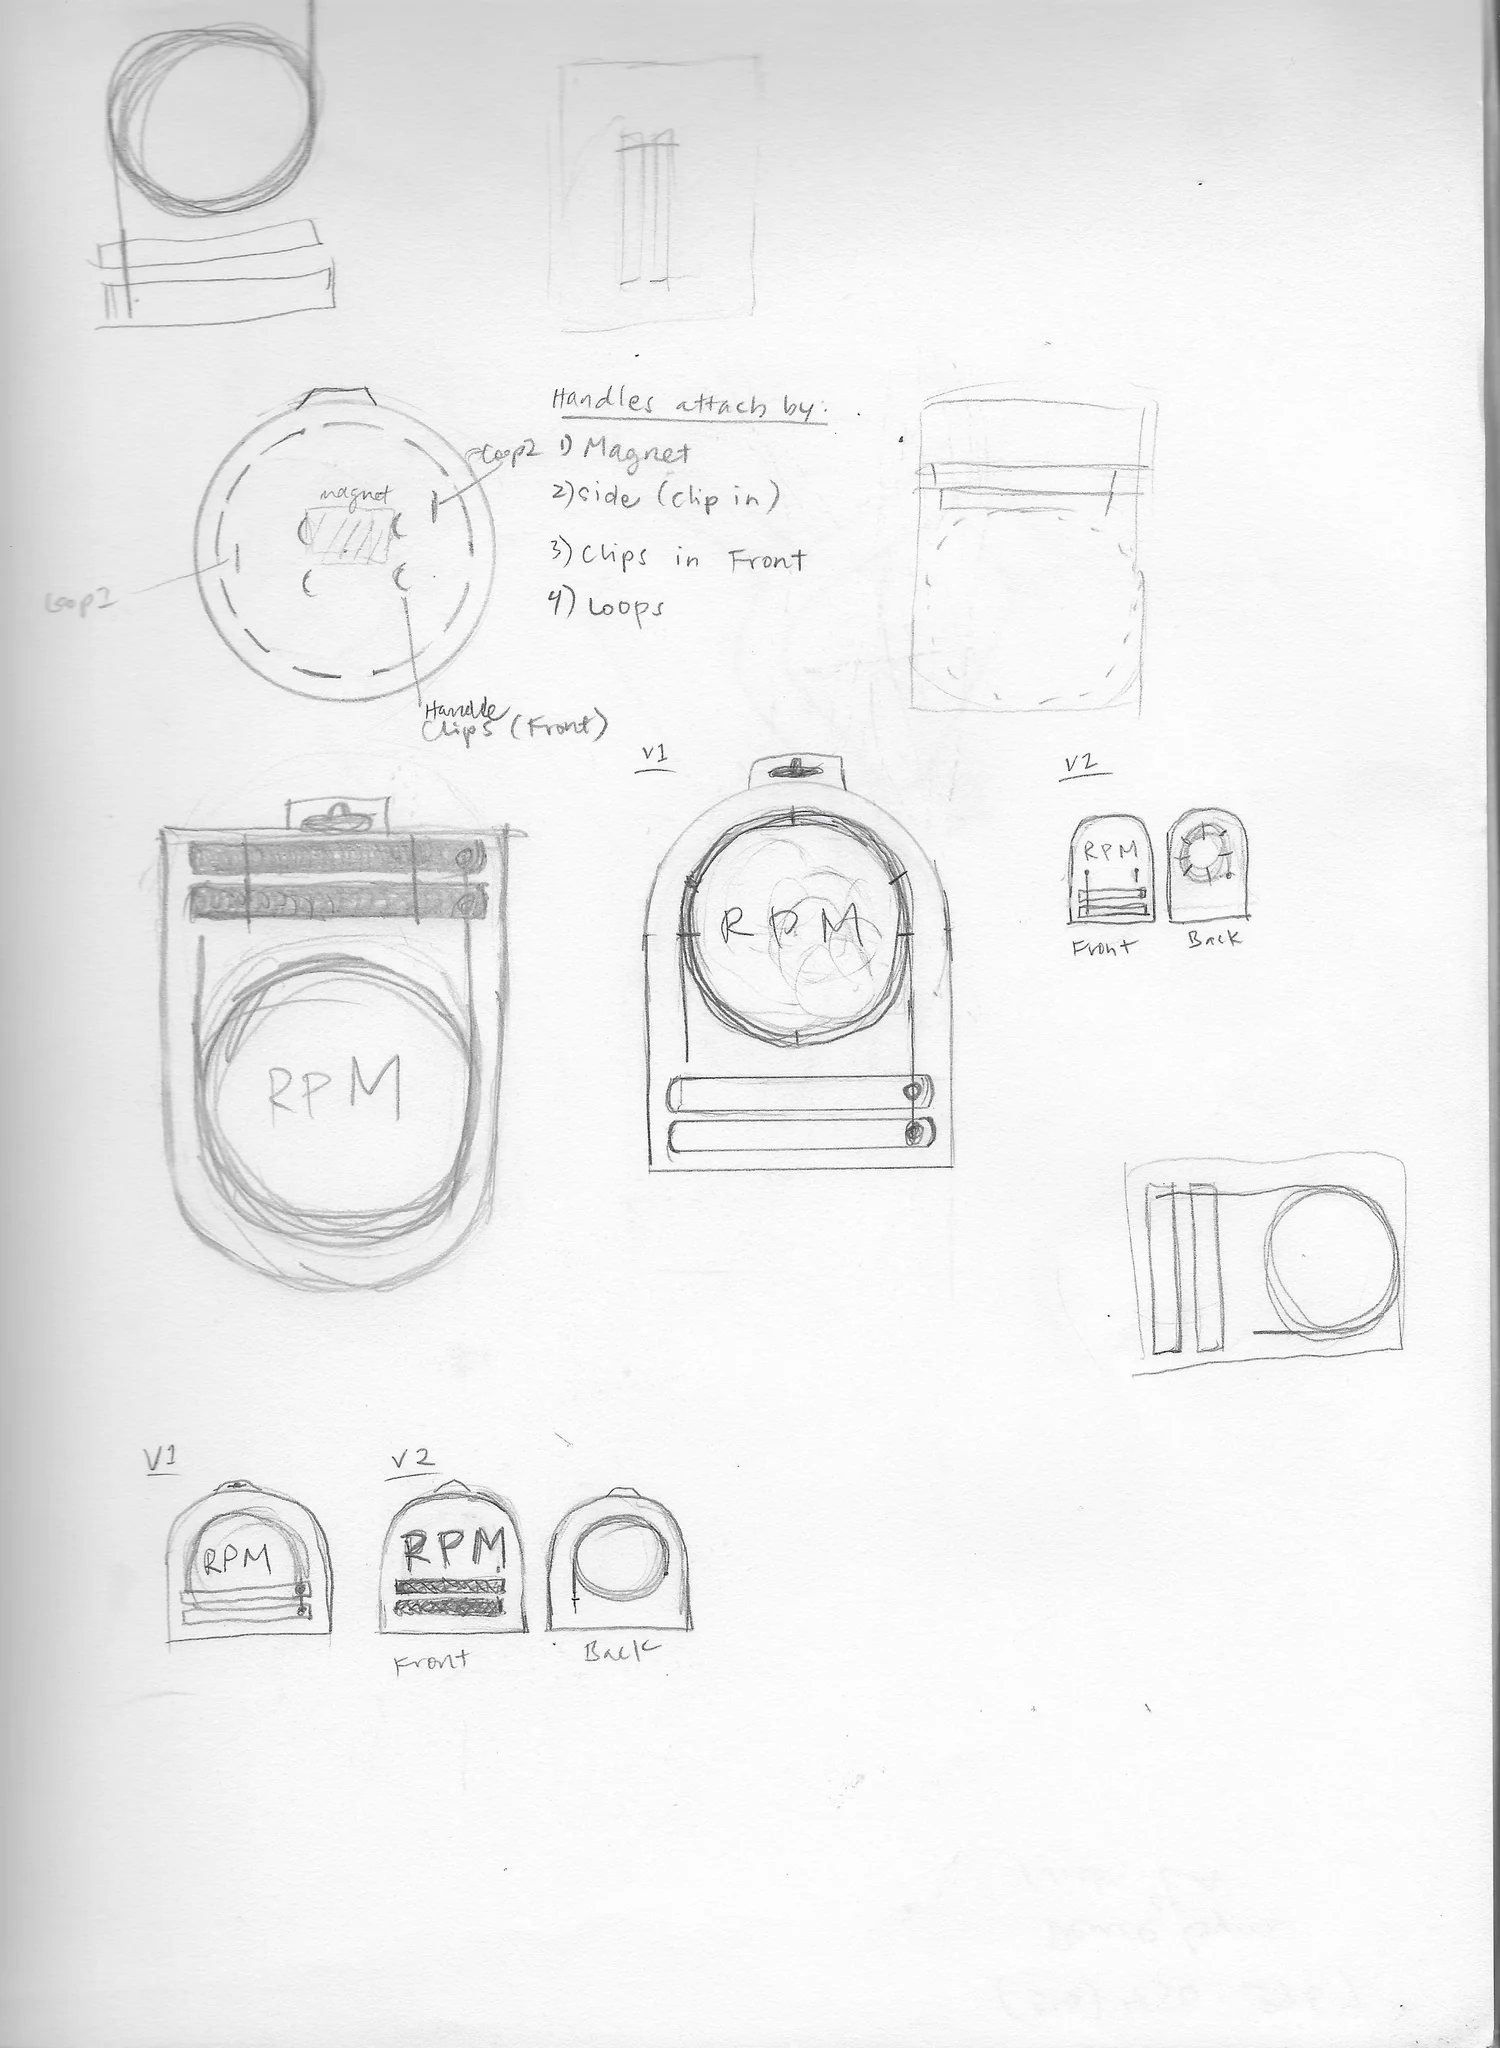 Handles attach by:
1) Magnet
2) side (clip in)
3) Clips in Front
4) Loops
Loop2
magnet
Loop1
Handle
Clips (Front)
V1
RPM
V2
RPM
Front
Back
RPM
V1
RPM
V2
RPM
Front
Back